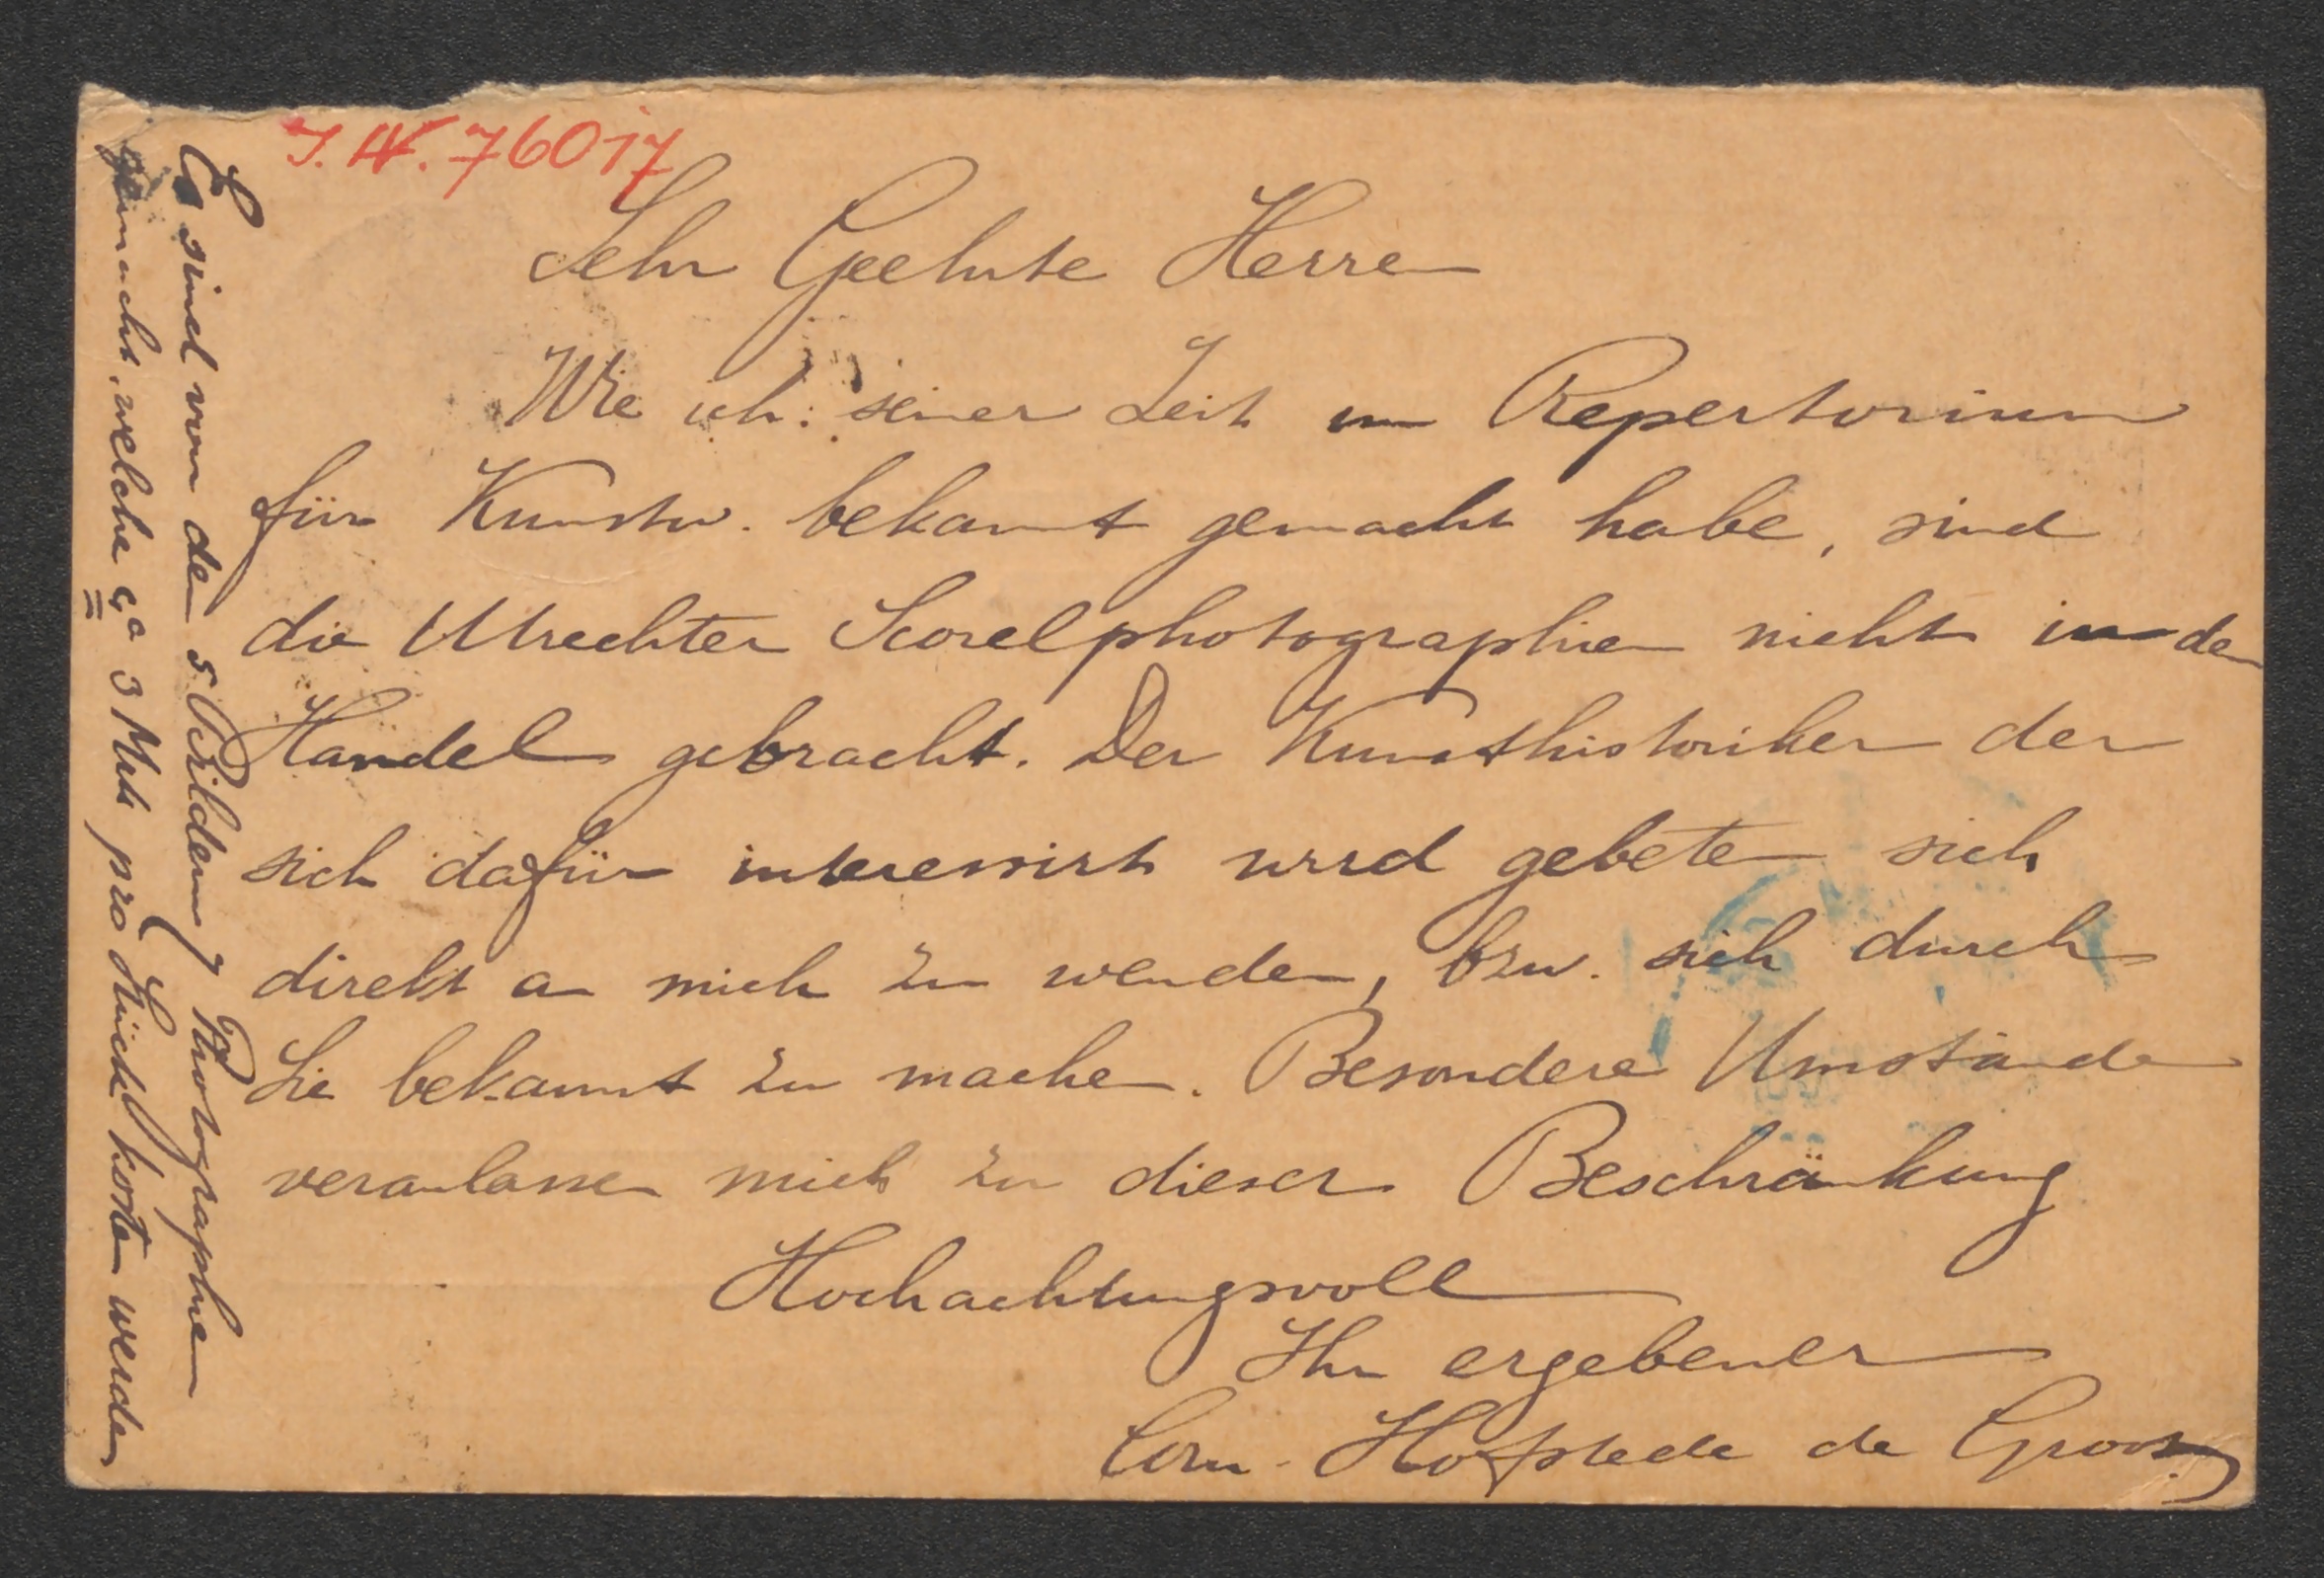 J.N. 76017
Sehr Geehrte Herren
Wie ich seiner Zeit im Repertorium
für Kunstw. bekannt gemacht habe, sind
die Utrechter Scorelphotographien nicht in den
Handel gebracht. Der Kunsthistoriker der
sich dafür interessirt wird gebeten sich
direkt an mich zu wenden, bzw. sich durch
Sie bekannt zu machen. Besondere Umstände
veranlassen mich zu dieser Beschränkung
Hochachtungsvoll
Ihr ergebener
Corn. Hofstede de Groot
Es sind von den 5 Bildern 7 Photographien
gemacht, welche ca 3 Mrk pro Stück kosten werden